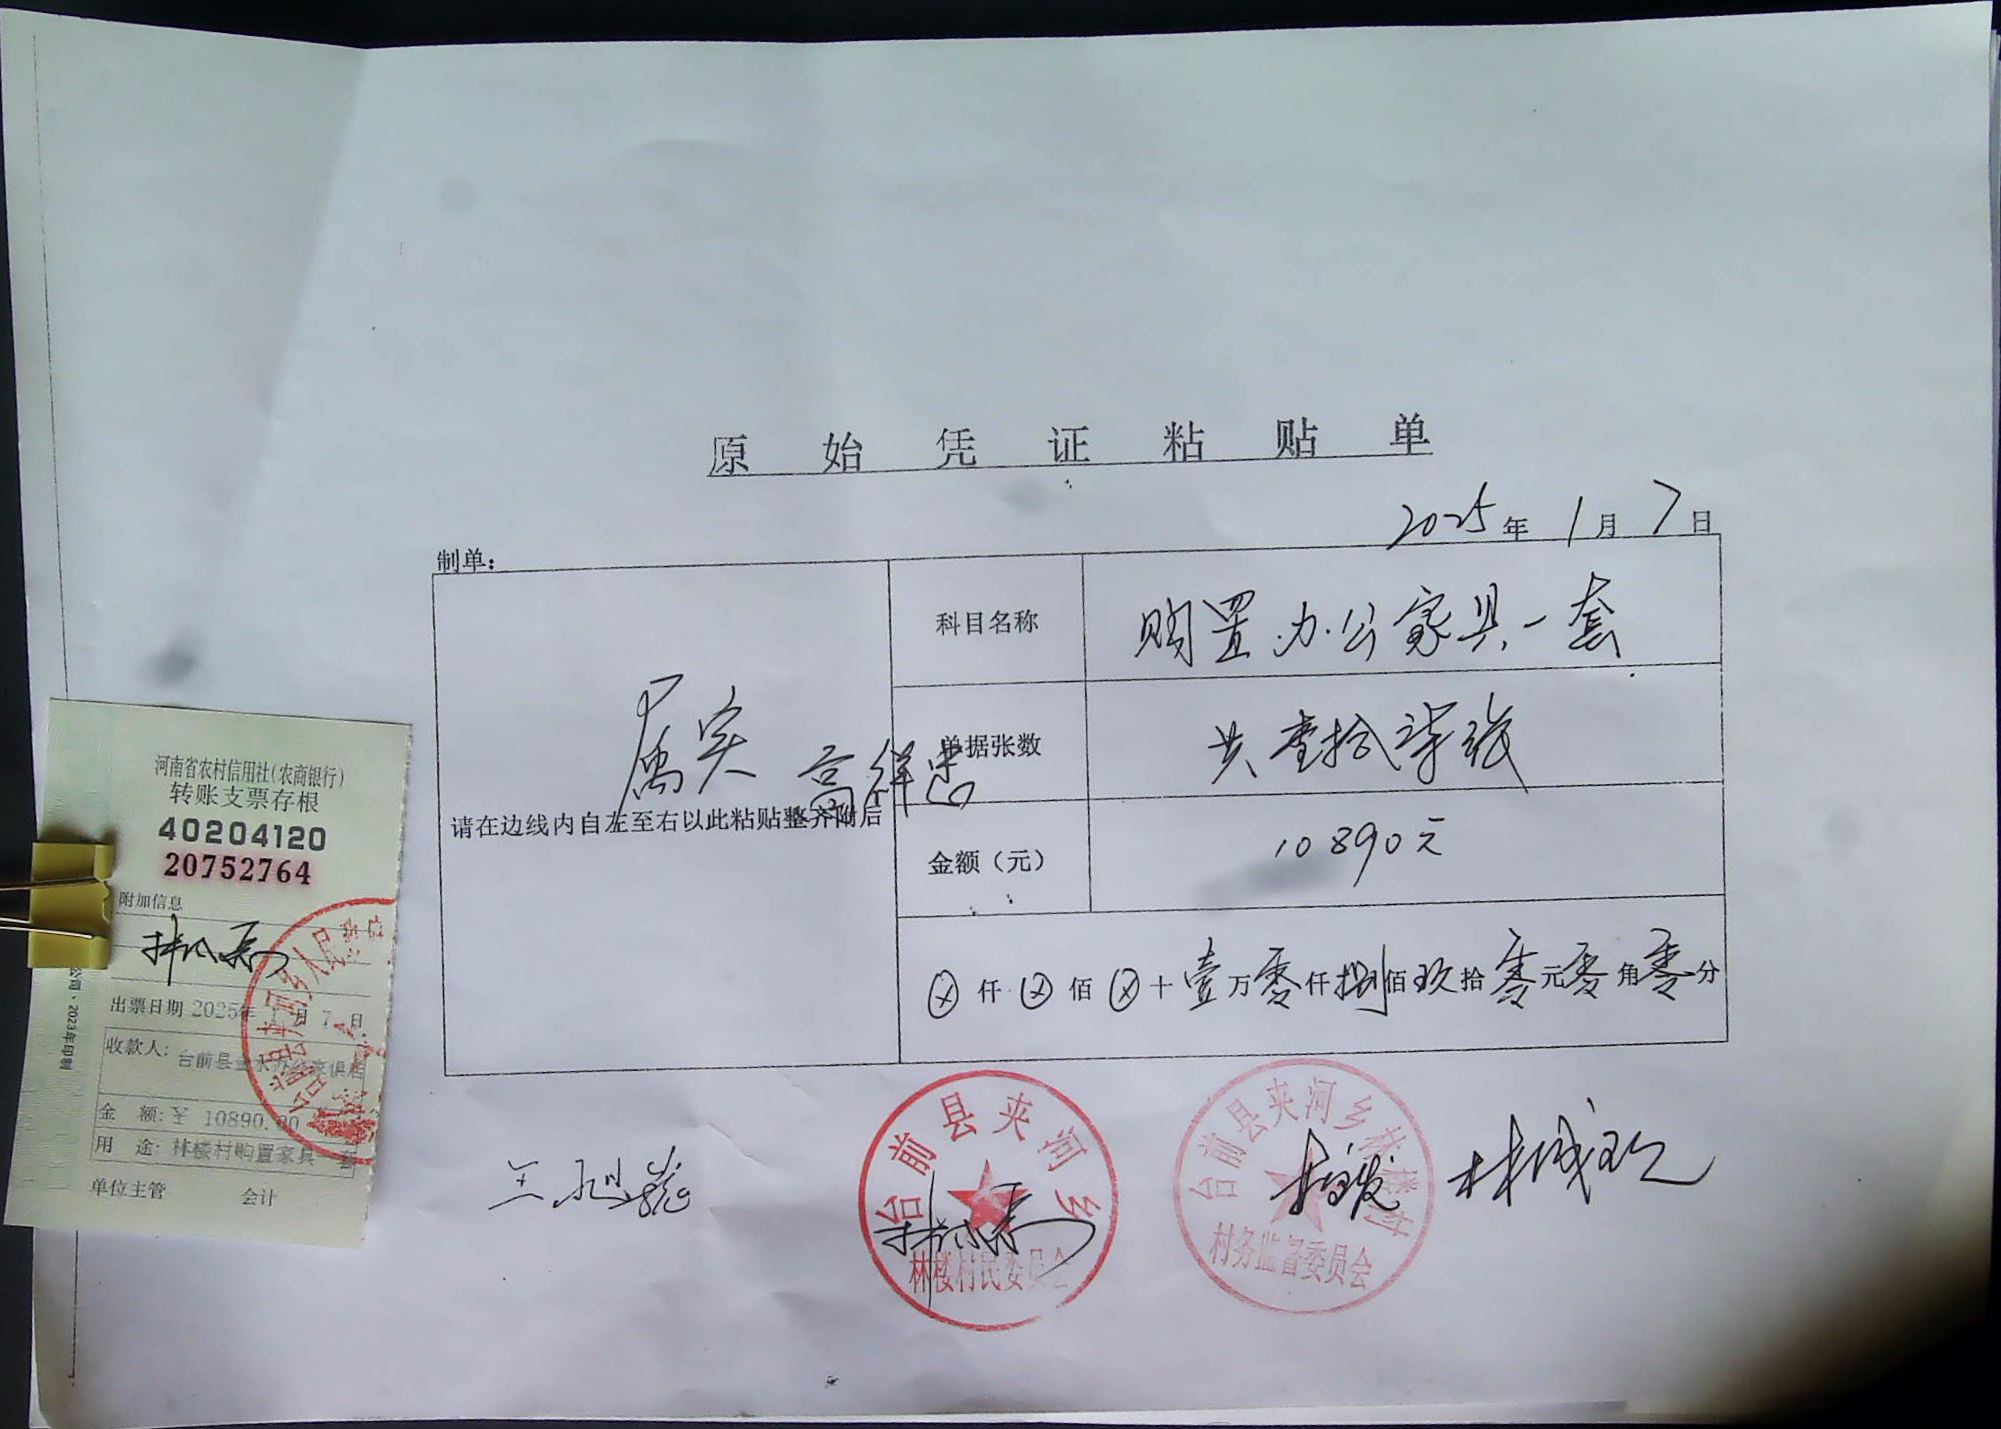 原始凭证粘贴单
2025年1月7日
制单:
科目名称
购置办公家具一套
属实
单据张数
共壹拾柒张
高祥忠
请在边线内自左至右以此粘贴整齐附后
金额（元）
10890元
ⓧ仟ⓧ佰ⓧ十壹万零仟捌佰玖拾零元零角零分
河南省农村信用社(农商银行)
转账支票存根
40204120
20752764
附加信息
出票日期 2025年1月7日
收款人: 台前县
金 额: ¥ 10890.00
用 途: 林楼村购置家具一套
单位主管 会计
公司·2023年印制
台前县夹河乡
林楼村民委员会
台前县夹河乡林楼村
村务监督委员会